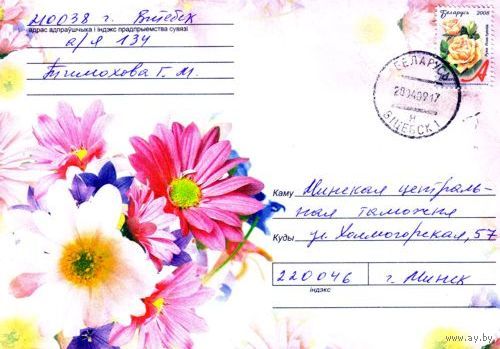 210038 г. Витебск
адрас адпраўшчыка і індэкс прадпрыемства сувязі
а/я 134
Тимохова Г. М.
Беларусь 2008
A
БЕЛАРУСЬ
200409 17
И
ВІЦЕБСК 1
Каму Минская централь-
ная таможня
Куды ул. Холмогорская, 57
220046 г. Минск
індэкс
www.ay.by